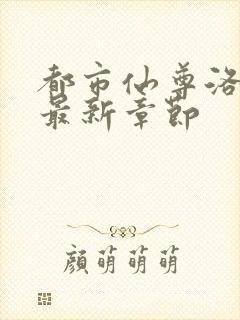 都市仙尊洛
最新章節
顏萌萌萌